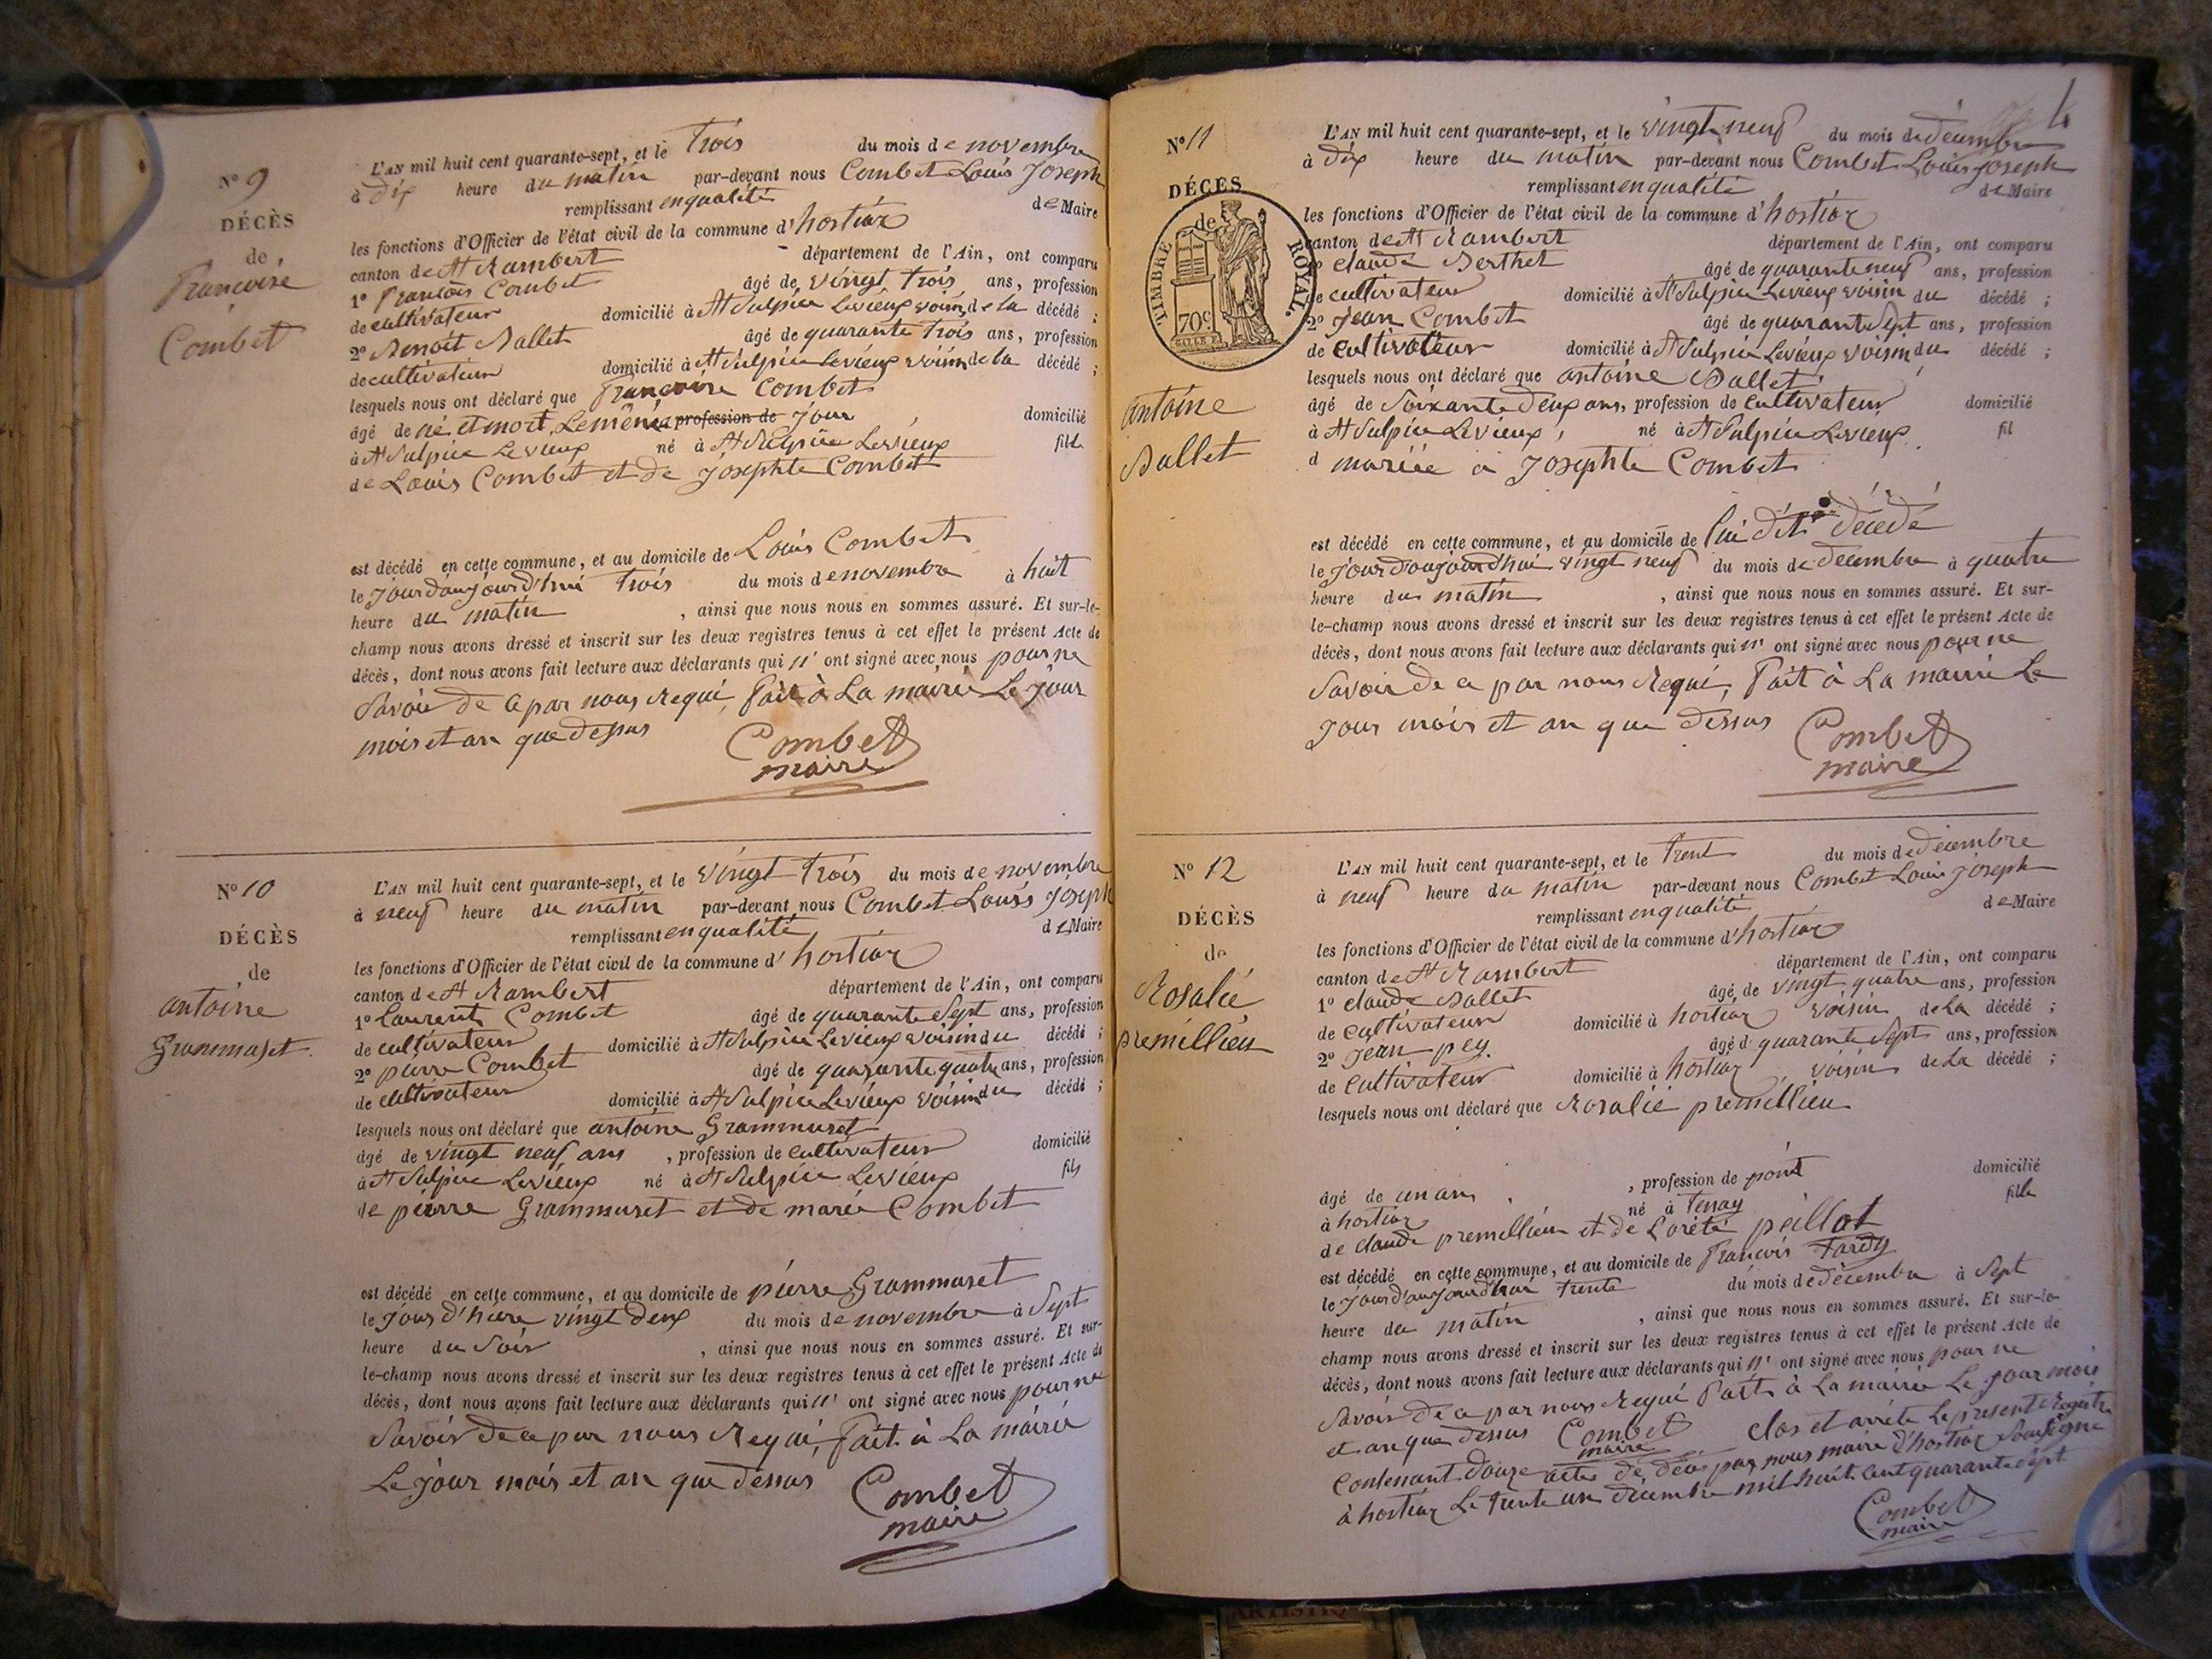 N° 9
DÉCÈS
de
Françoise
Combet
L'AN mil huit cent quarante-sept, et le trois du mois de novembre
à dix heure du matin par-devant nous Combet Louis Joseph
remplissant en qualité de Maire
les fonctions d'Officier de l'état civil de la commune d'hostiaz
canton de St Rambert département de l'Ain, ont comparu
1° François Combet âgé de vingt trois ans, profession
de cultivateur domicilié à St Sulpice Levieux voisin de la décédé ;
2° Benoit Ballet âgé de quarante trois ans, profession
de cultivateur domicilié à St Sulpice Levieux voisin de la décédé ;
lesquels nous ont déclaré que Françoise Combet
âgé de né et mort Le même profession de jour domicilié
à St Sulpice Levieux né à St Sulpice Levieux fille
de Louis Combet et de Josephte Combet
est décédé en cette commune, et au domicile de Louis Combet
le jour d'aujourd'hui trois du mois de novembre à huit
heure du matin , ainsi que nous nous en sommes assuré. Et sur-le-
champ nous avons dressé et inscrit sur les deux registres tenus à cet effet le présent Acte de
décès, dont nous avons fait lecture aux déclarants qui n' ont signé avec nous pour ne
Savoir de ce par nous Requi, Fait à La mairie Le jour
mois et an que dessus
Combet
maire
N° 10
DÉCÈS
de
antoine
Grammuset
L'AN mil huit cent quarante-sept, et le vingt trois du mois de novembre
à neuf heure du matin par-devant nous Combet Louis Joseph
remplissant en qualité de Maire
les fonctions d'Officier de l'état civil de la commune d'hostiaz
canton de St Rambert département de l'Ain, ont comparu
1° Laurent Combet âgé de quarante Sept ans, profession
de cultivateur domicilié à St Sulpice Levieux voisin du décédé ;
2° pierre Combet âgé de quarante quatre ans, profession
de cultivateur domicilié à St Sulpice Levieux voisin du décédé ;
lesquels nous ont déclaré que antoine Grammuset
âgé de vingt neuf ans , profession de cultivateur domicilié
à St Sulpice Levieux né à St Sulpice Levieux fils
de pierre Grammuset et de marie Combet
est décédé en cette commune, et au domicile de pierre Grammuset
le jour d'hière vingt deux du mois de novembre à Sept
heure du Soir , ainsi que nous nous en sommes assuré. Et sur-
le-champ nous avons dressé et inscrit sur les deux registres tenus à cet effet le présent Acte de
décès, dont nous avons fait lecture aux déclarants qui n' ont signé avec nous pour ne
Savoir de ce par nous Requi, Fait à La mairie
Le jour mois et an que dessus
Combet
maire
N° 11
DÉCÈS
de
TIMBRE ROYAL.
70c
antoine
Ballet
L'AN mil huit cent quarante-sept, et le vingt neuf du mois de decembre
à dix heure du matin par-devant nous Combet Louis Joseph
remplissant en qualité de Maire
les fonctions d'Officier de l'état civil de la commune d'hostiaz
canton de St Rambert département de l'Ain, ont comparu
1° claude Berthet âgé de quarante neuf ans, profession
de cultivateur domicilié à St Sulpice Levieux voisin du décédé ;
2° Jean Combet âgé de quarante Sept ans, profession
de cultivateur domicilié à St Sulpice Levieux voisin du décédé ;
lesquels nous ont déclaré que antoine Ballet
âgé de Soixante deux ans, profession de cultivateur domicilié
à St Sulpice Levieux, né à St Sulpice Levieux fil
d mariée a Josephte Combet
est décédé en cette commune, et au domicile de lui dit décédé
le jour d'aujourd'hui vingt neuf du mois de decembre à quatre
heure du matin , ainsi que nous nous en sommes assuré. Et sur-
le-champ nous avons dressé et inscrit sur les deux registres tenus à cet effet le présent Acte de
décès, dont nous avons fait lecture aux déclarants qui n' ont signé avec nous pour ne
Savoir de ce par nous Requi, Fait à La mairie Le
jour mois et an que dessus
Combet
maire
N° 12
DÉCÈS
de
Rosalie
premillieu
L'AN mil huit cent quarante-sept, et le trent du mois de decembre
à neuf heure du matin par-devant nous Combet Louis Joseph
remplissant en qualité de Maire
les fonctions d'Officier de l'état civil de la commune d'hostiaz
canton de St Rambert département de l'Ain, ont comparu
1° claude Ballet âgé de vingt quatre ans, profession
de cultivateur domicilié à hostiaz voisin de la décédé ;
2° Jean pey. âgé d quarante Sept ans, profession
de cultivateur domicilié à hostiaz voisin de La décédé ;
lesquels nous ont déclaré que Rosalie premillieu
âgé de un an , profession de point domicilié
à hostiaz né à Tenay fille
de claude premillieu et de Lorete peillot
est décédé en cette commune, et au domicile de François Tardy
le jour d'aujourd'hui trente du mois de décembre à Sept
heure du matin , ainsi que nous nous en sommes assuré. Et sur-le-
champ nous avons dressé et inscrit sur les deux registres tenus à cet effet le présent Acte de
décès, dont nous avons fait lecture aux déclarants qui n' ont signé avec nous pour ne
Savoir de ce par nous Requi Fait à La mairie Le jour mois
et an que dessus Combet maire clos et arrêté Le present Registre
Contenant douze actes de décès par nous maire d'hostiaz Soussigné
à hostiaz Le trente un décembre mil huit cent quarante sept
Combet
maire